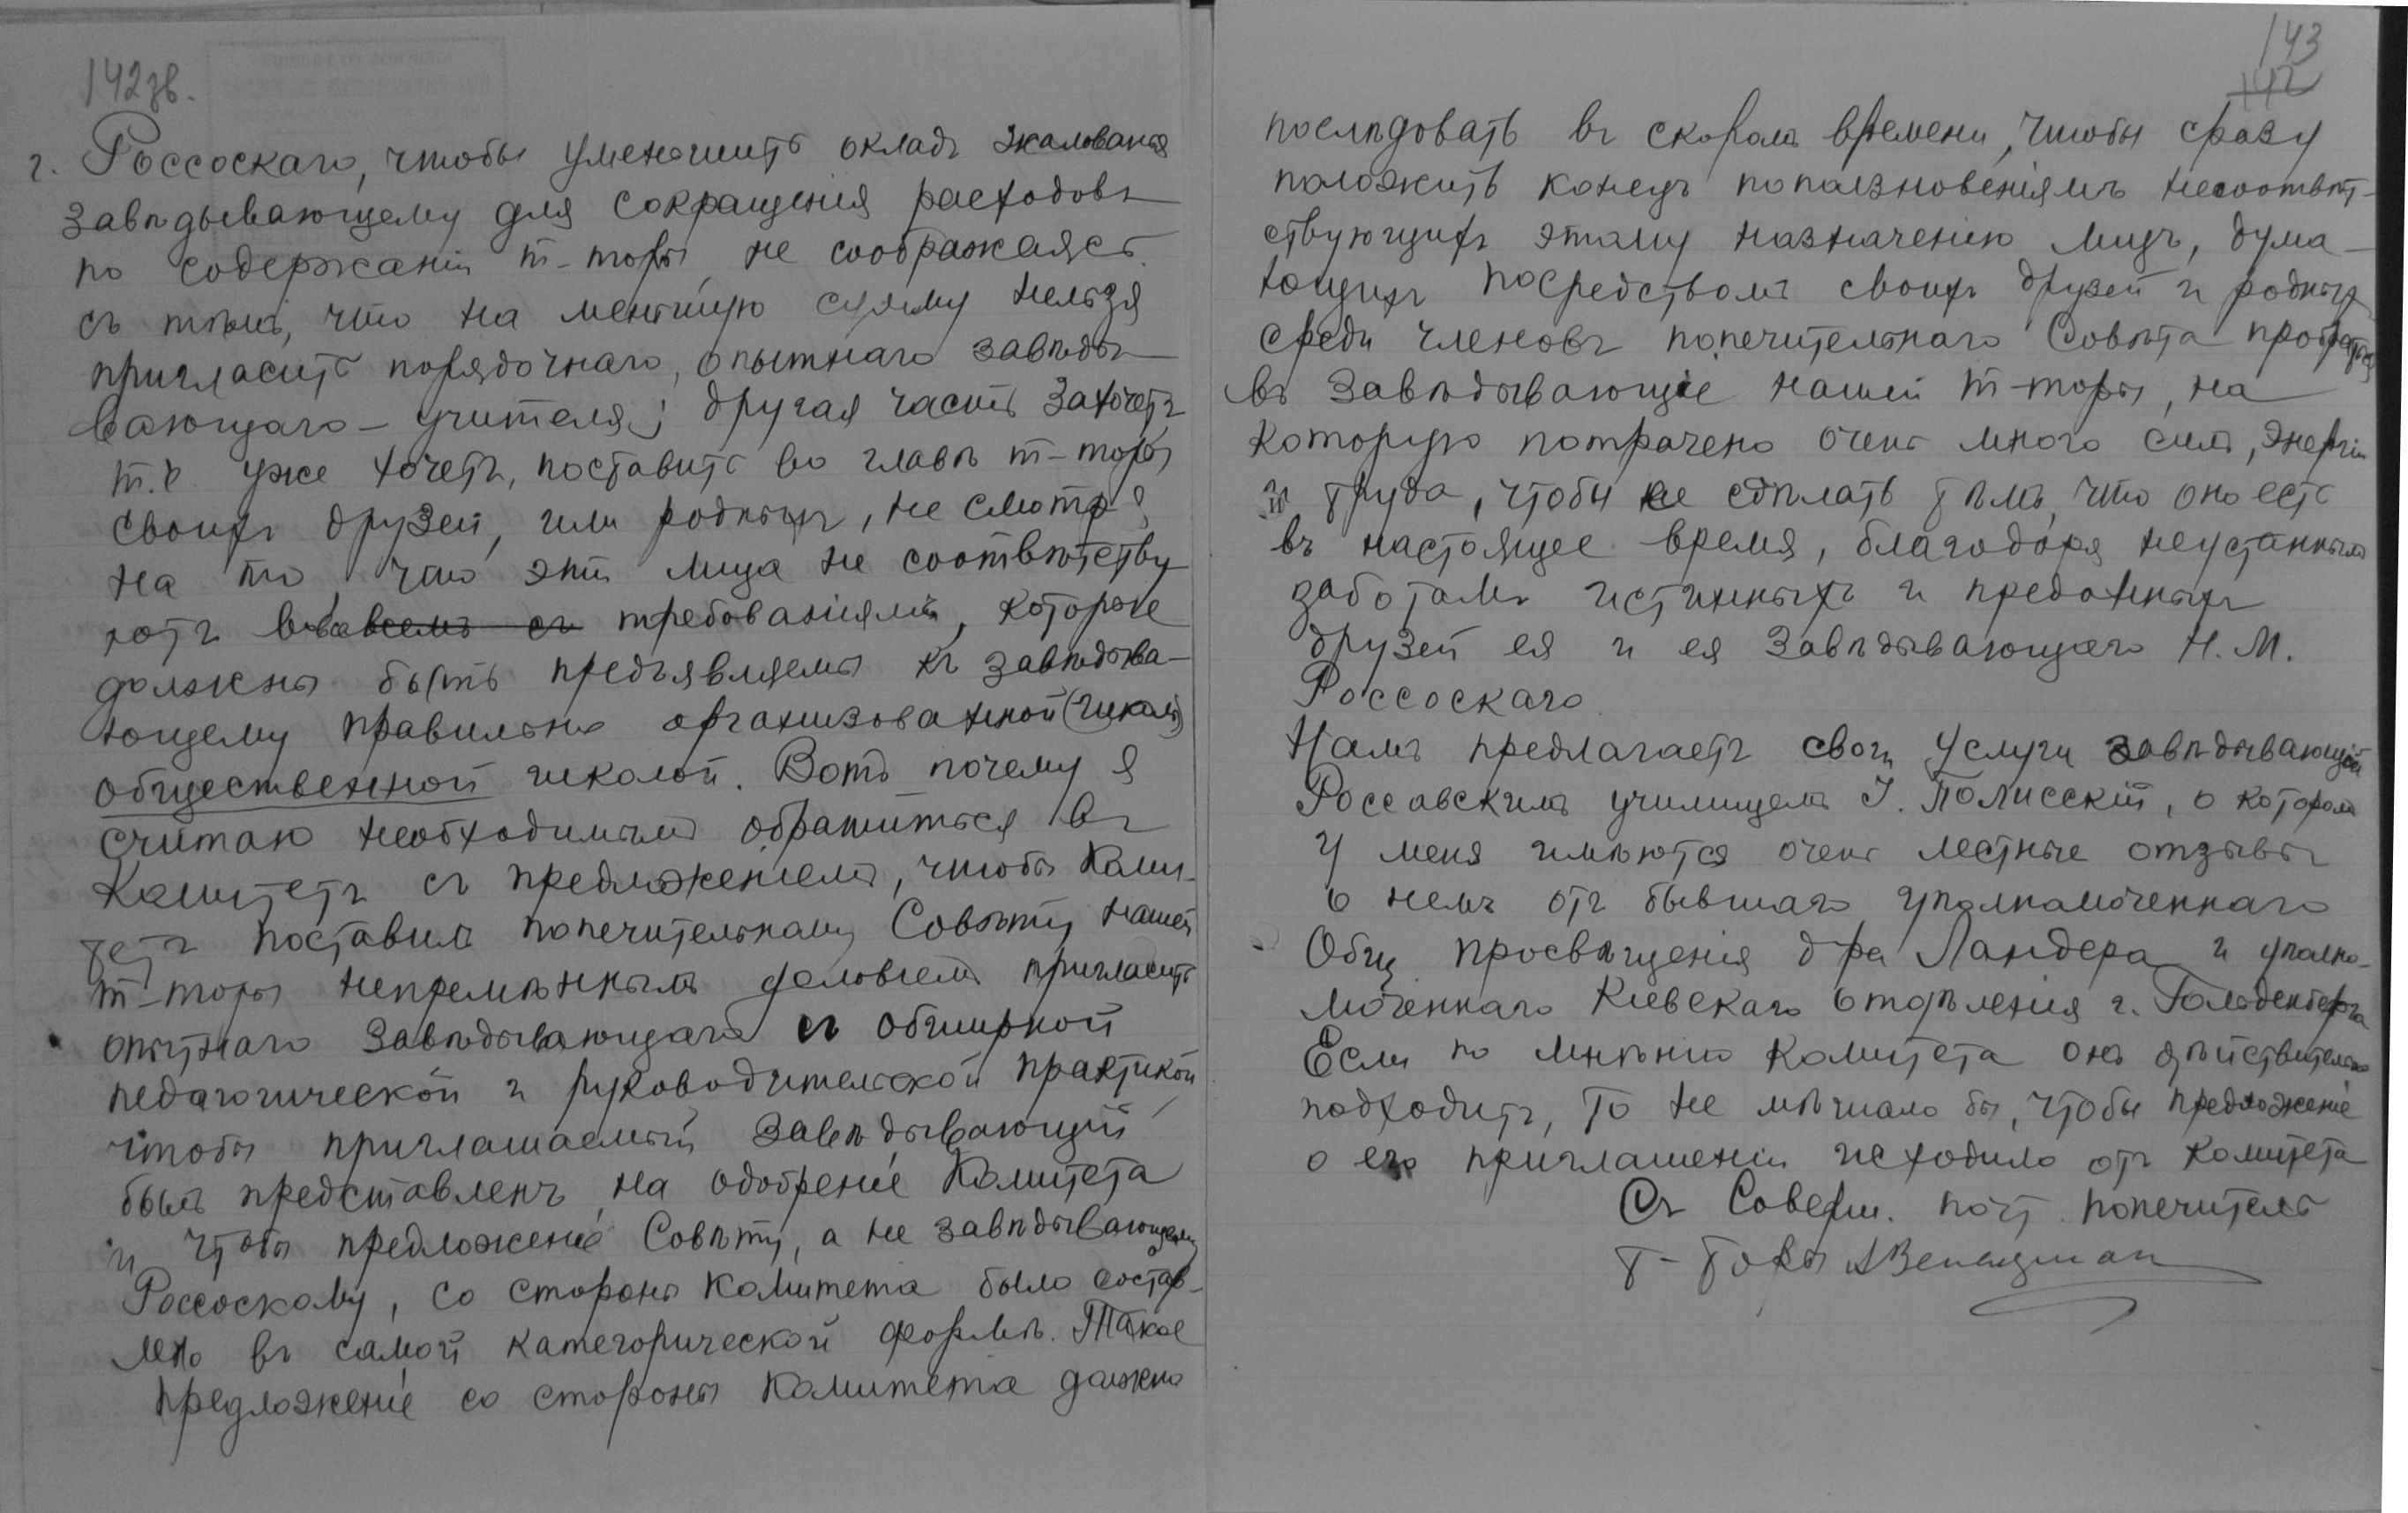 142зв.
г. Россоскаго, чтобы уменьшить окладъ жалованья
завѣдывающему для сокращенія расходовъ
по содержанію т-торы, не соображаясь
съ тѣмъ, что на меньшую сумму нельзя
пригласить порядочнаго, опытнаго завѣды-
вающаго - учителя; другая часть захочетъ
т.е. уже хочетъ, поставить во главѣ т-торы
своихъ друзей, или родныхъ, не смотря
на то, что эти лица не соотвѣтству-
ютъ требованіямъ, которые
должны быть предъявляемы къ завѣдыва-
ющему правильно организованной (школы)
общественной школой. Вотъ почему я
считаю необходимымъ обратиться въ
Комитетъ съ предложеніемъ, чтобы Коми-
тетъ поставилъ попечительному Совѣту нашей
т-торы непремѣннымъ условіемъ пригласить
опытнаго завѣдывающаго съ обширной
педагогической и руководительской практикой,
чтобы приглашаемый завѣдывающій
былъ представленъ на одобреніе Комитета
и чтобы предложеніе Совѣту, а не завѣдывающему
Россоскому, со стороны Комитета было состав-
лено въ самой категорической формѣ. Такое
предложеніе со стороны Комитета должно
143
142
послѣдовать въ скоромъ времени, чтобы сразу
положить конецъ поползновеніямъ несоотвѣт-
ствующихъ этому назначенію лицъ, дума-
ющихъ посредствомъ своихъ друзей и родныхъ
среди членовъ попечительнаго Совѣта пробраться
въ завѣдывающіе нашей т-торы, на
которую потрачено очень много силъ, энергіи
и труда, чтобы ее сдѣлать тѣмъ, что она есть
въ настоящее время, благодаря неустаннымъ
заботамъ истинныхъ и преданныхъ
друзей ея и ея завѣдывающаго Н. М.
Россоскаго.
Намъ предлагаетъ свои услуги завѣдывающій
Россавскимъ училищемъ І. Полисскій, о которомъ
у меня имѣются очень лестные отзывы
о немъ отъ бывшаго уполномоченнаго
Общ просвѣщенія д-ра Ландера и уполно-
моченнаго Кіевскаго отдѣленія г. Гольденберга
Если по мнѣнію Комитета онъ дѣйствительно
подходитъ, то не мѣшало бы, чтобы предложеніе
о его приглашеніи исходило отъ Комитета
Съ Соверш. почт. попечитель
т-торы